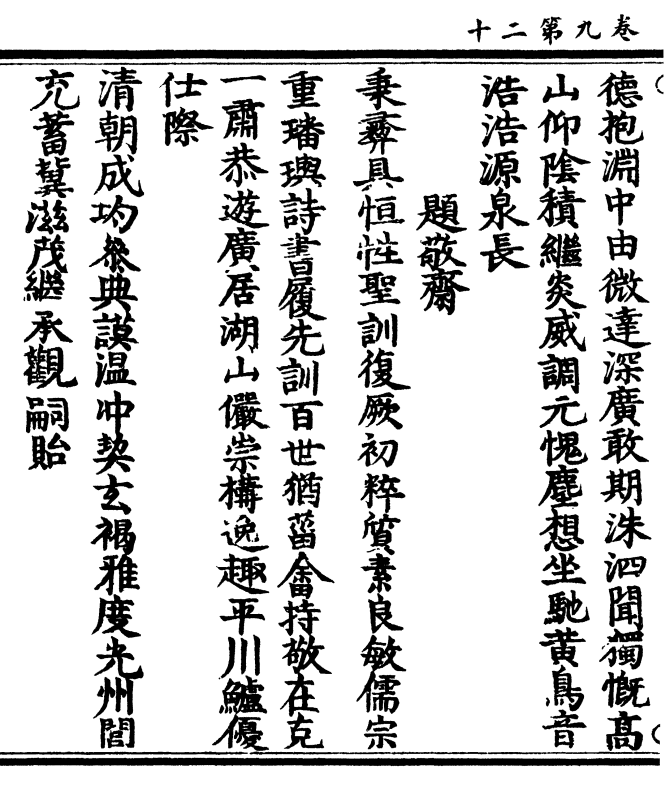 卷九第二十
德抱淵中由微達深廣敢期洙泗聞獨慨高
山仰陰積繼炎威調元愧塵想坐馳黃鳥音
浩浩源泉長
題敬齋
秉彝具恒性聖訓復厥初粹質素良敏儒宗
重璠璵詩書履先訓百世猶菑畬持敬在克
一肅恭遊廣居湖山儼崇構逸趣平川鱸優
仕際
清朝成均叅典謨温冲契玄裼雅度光州閭
充蓄冀滋茂繼承觀嗣貽